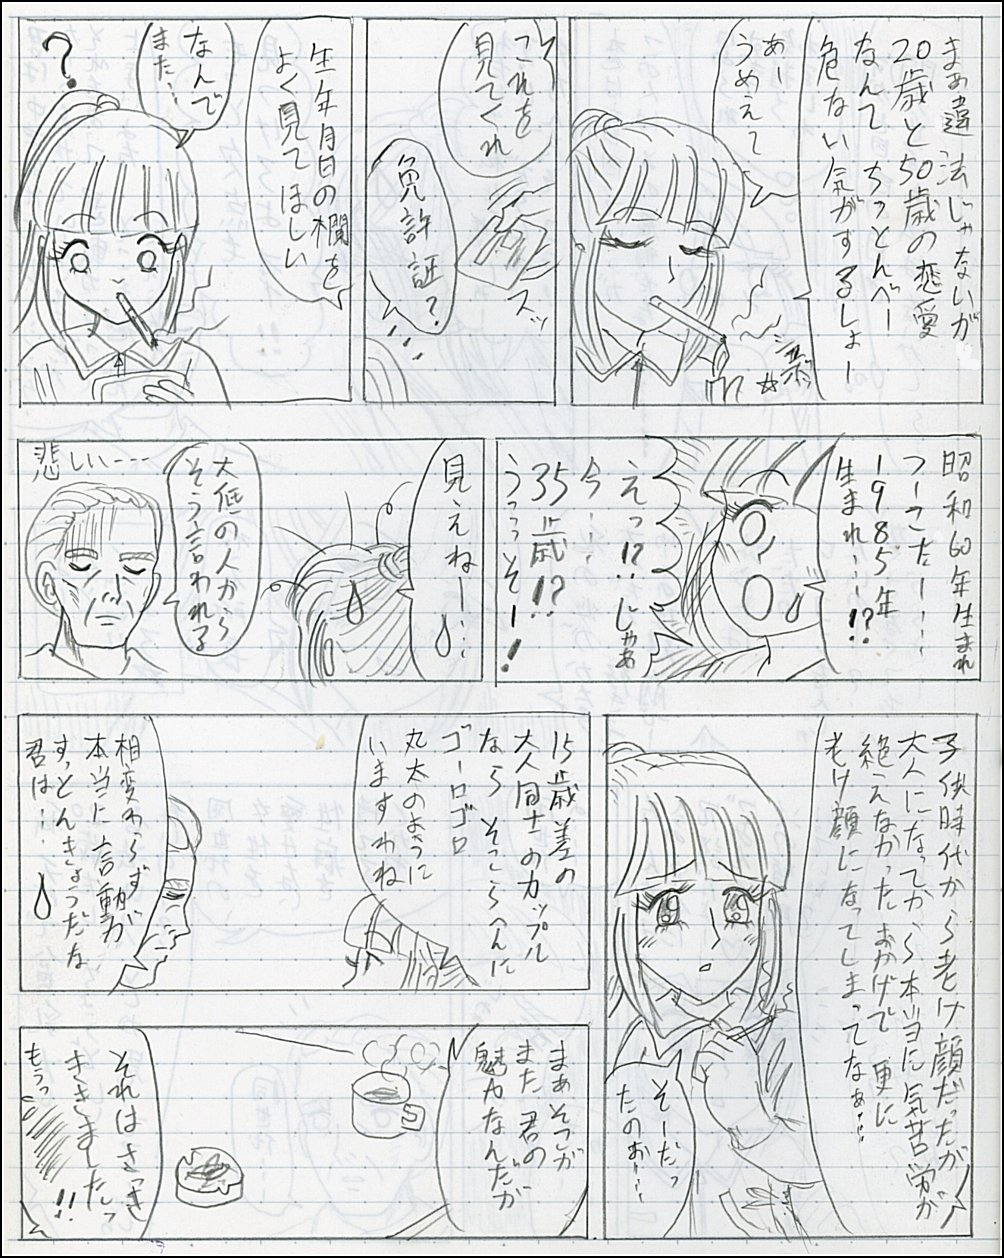 まぁ違法じゃないが
20歳と50歳の恋愛
なんてちっとんべー
危ない気がするしょー
あー
うめえて
ボッ
これを
見てくれ
スッ
免許証？
生年月日の欄を
よく見てほしい
なんで
また…
？
昭和60年生まれ
つーこたー…
1985年
生まれ…!?
えっ!?…じゃあ
今…
35歳!?
うっっそー！
見えねー…
大低の人から
そう言われる
悲しい…
子供時代から老け顔だったが
大人になってから本当に気苦労が
絶えなかったおかげで更に
老け顔になってしまってなぁ…
そーだっ
たのぉ…
15歳差の
大人同士のカップル
ならそこらへんに
ゴーロゴロ
丸太のように
いますわね
相変わらず
本当に言動が
すっとんきょうだな
君は…
まぁそこが
また君の
魅力なんだが
それはさっき
ききましたっ
もうっ!!